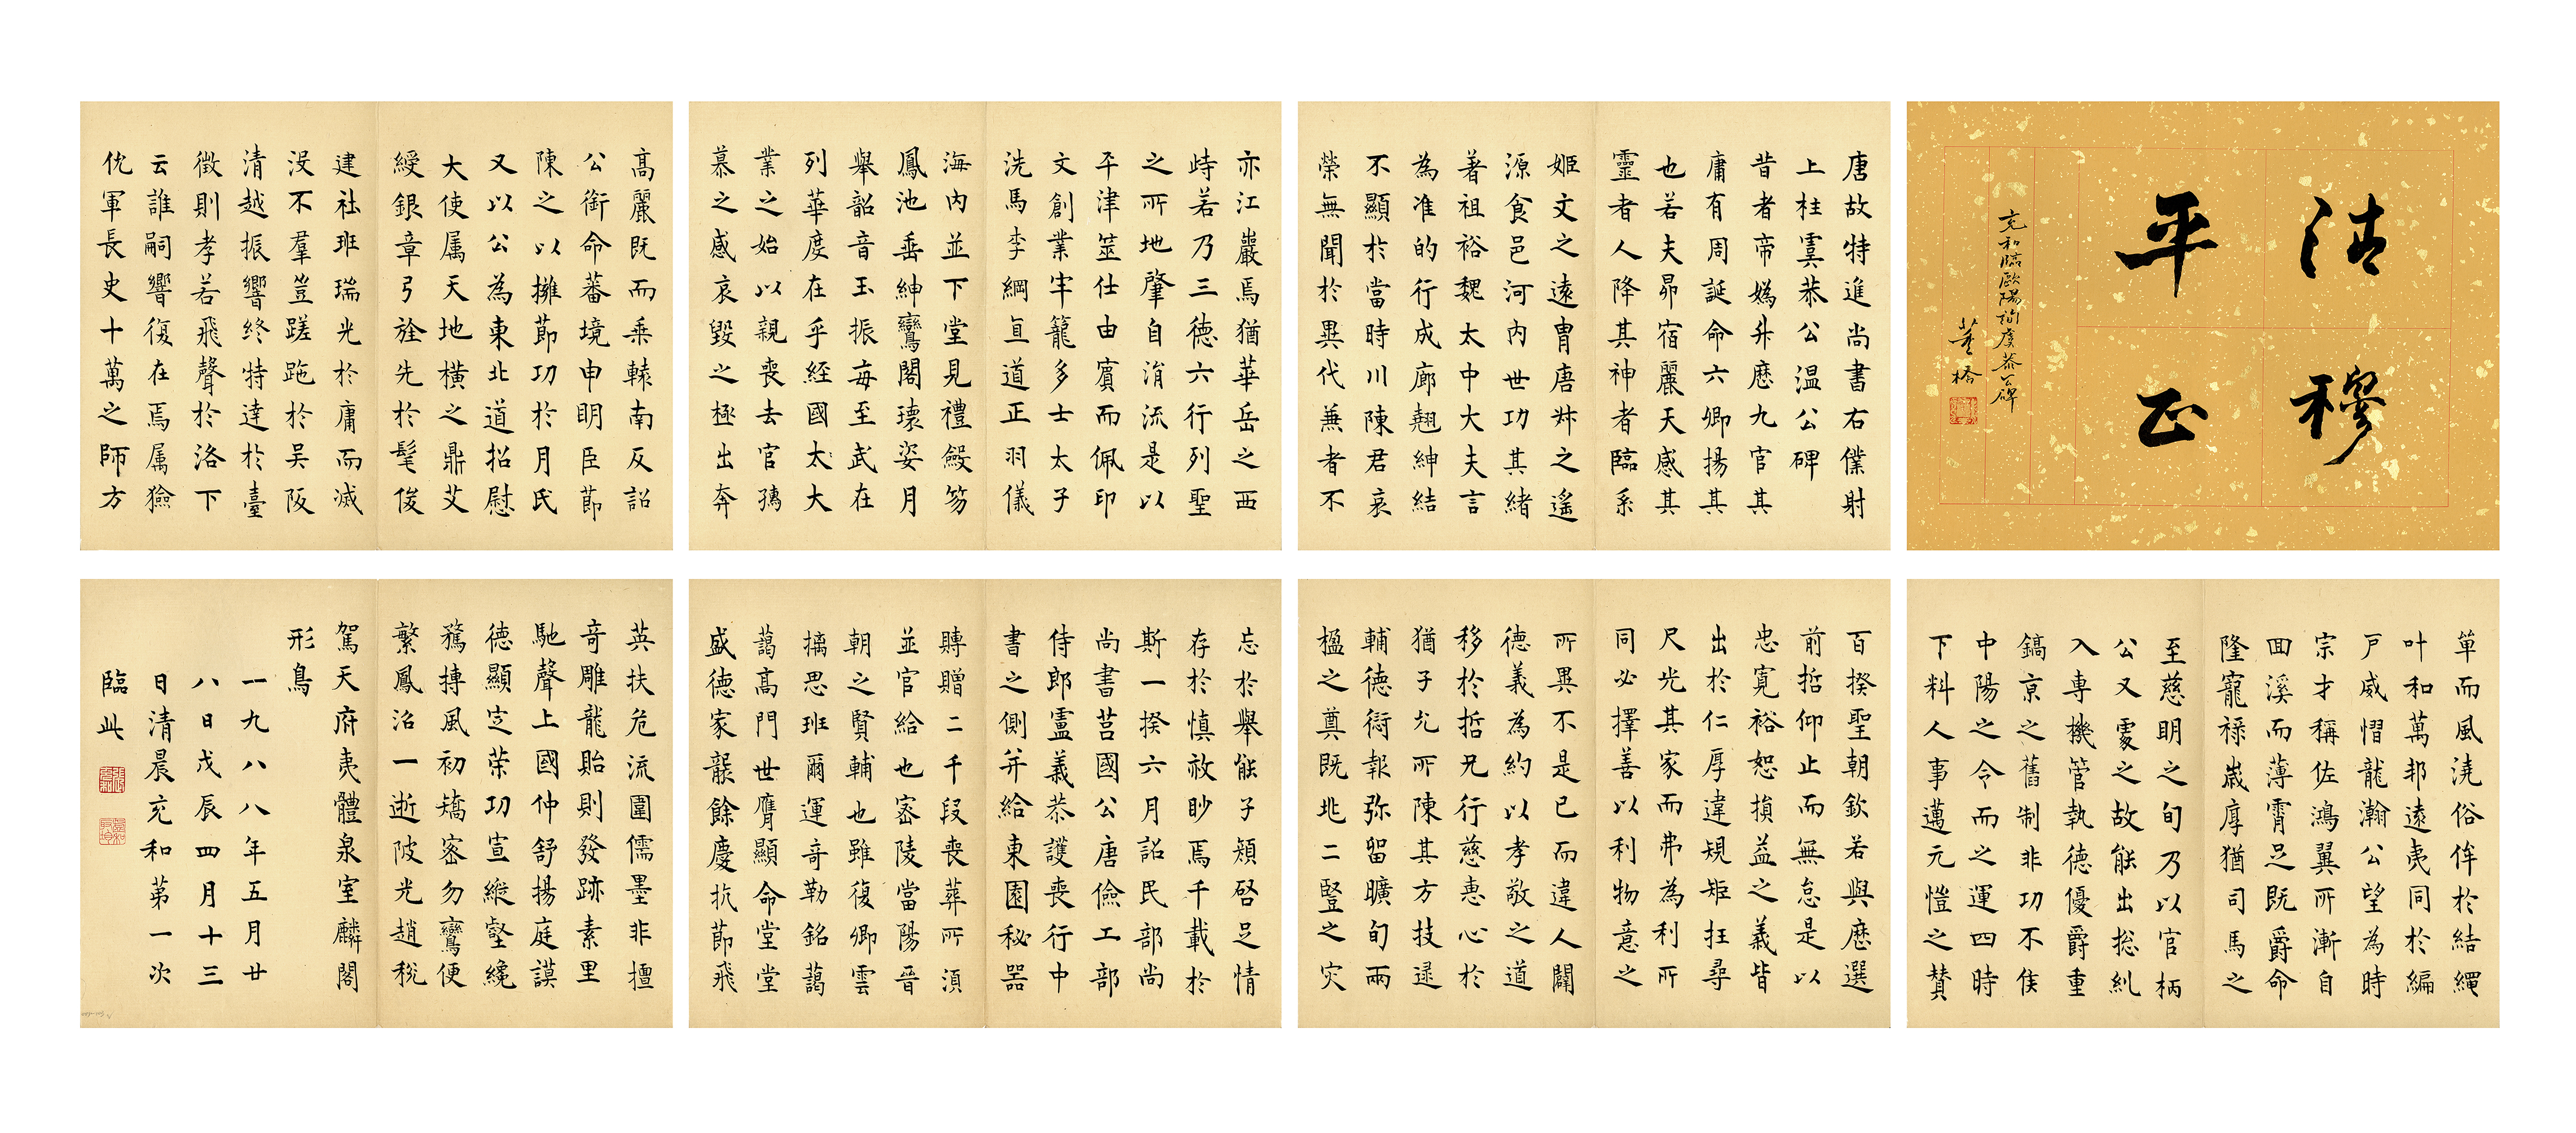 清穆
平正
充和臨歐陽詢虞恭公碑
董橋
唐故特進尚書右僕射
上柱虞恭公温公碑
昔者帝媯升歷九官其
庸有周誕命六卿揚其
也若夫昴宿麗天感其
靈者人降其神者臨系
姬文之遠胄唐叔之遙
源食邑河內世功其緒
著祖裕魏太中大夫言
為准的行成廊翹紳結
不顯於當時川陳君哀
榮無聞於異代蒹者不
亦江巖焉猶華岳之西
峙若乃三德六行列聖
之所地肇自消流是以
平津筮仕由賓而佩印
文創業牢籠多士太子
洗馬李綱直道正羽儀
海內並下堂見禮毅笏
鳳池垂紳鸞閣瓌姿月
舉韶音玉振每至武在
列華度在乎經國太大
業之始以親喪去官孺
慕之感哀毀之極出奔
高麗既而乘轅南反詔
公銜命蕃境申明臣節
陳之以擁節功於月氏
又以公為東北道招慰
大使属天地橫之鼎艾
綬銀章弓旌先於髦俊
建社班瑞光於庸而滅
沒不羣豈蹉跎於吳阪
清越振響終特達於臺
徵則孝若飛聲於洛下
云誰嗣響復在焉属獫
仇軍長史十萬之師方
草而風澆俗侔於結繩
叶和萬邦遠夷同於編
戶威慴龍瀚公望為時
宗才稱佐鴻翼所漸自
回溪而薄霄足既爵命
隆寵祿歲厚猶司馬之
至慈明之旬乃以官柄
公又處之故能出揔糺
入專機管執德優爵重
鎬京之舊制非功不侯
中陽之令而之運四時
下料人事邁元愷之贊
百揆聖朝欽若與歷選
前哲仰止而無怠是以
忠寬裕恕損益之義皆
出於仁厚違規矩抂尋
尺光其家而弗為利所
同必擇善以利物意之
所異不是已而違人闢
德義為約以孝敬之道
移於哲兄行慈恵心於
猶子允所陳其方技逯
輔德衍報弥留曠旬兩
楹之奠既兆二豎之灾
忘於舉能子頬啓足情
存於慎敘眇焉千載於
斯一揆六月詔民部尚
尚書莒國公唐儉工部
侍郎盧義恭護喪行中
書之側并給東園秘器
賻贈二千段喪葬所湏
並官給也宻陵當陽晉
朝之賢輔也雖復卿雲
摛思班爾運奇勒銘藹
藹高門世膺顯命堂堂
盛德家襲餘慶抗節飛
英扶危流圍儒墨非擅
竒雕龍貽則發跡素里
馳聲上國仲舒揚庭謨
德顯定荣功宣縱壑纔
騖摶風初矯宻勿鸞便
繁鳳沼一逝陂光趙稅
駕天府夷體泉室麟閣
形鳥
一九八八年五月廿
八日戊辰四月十三
日清晨充和第一次
臨此